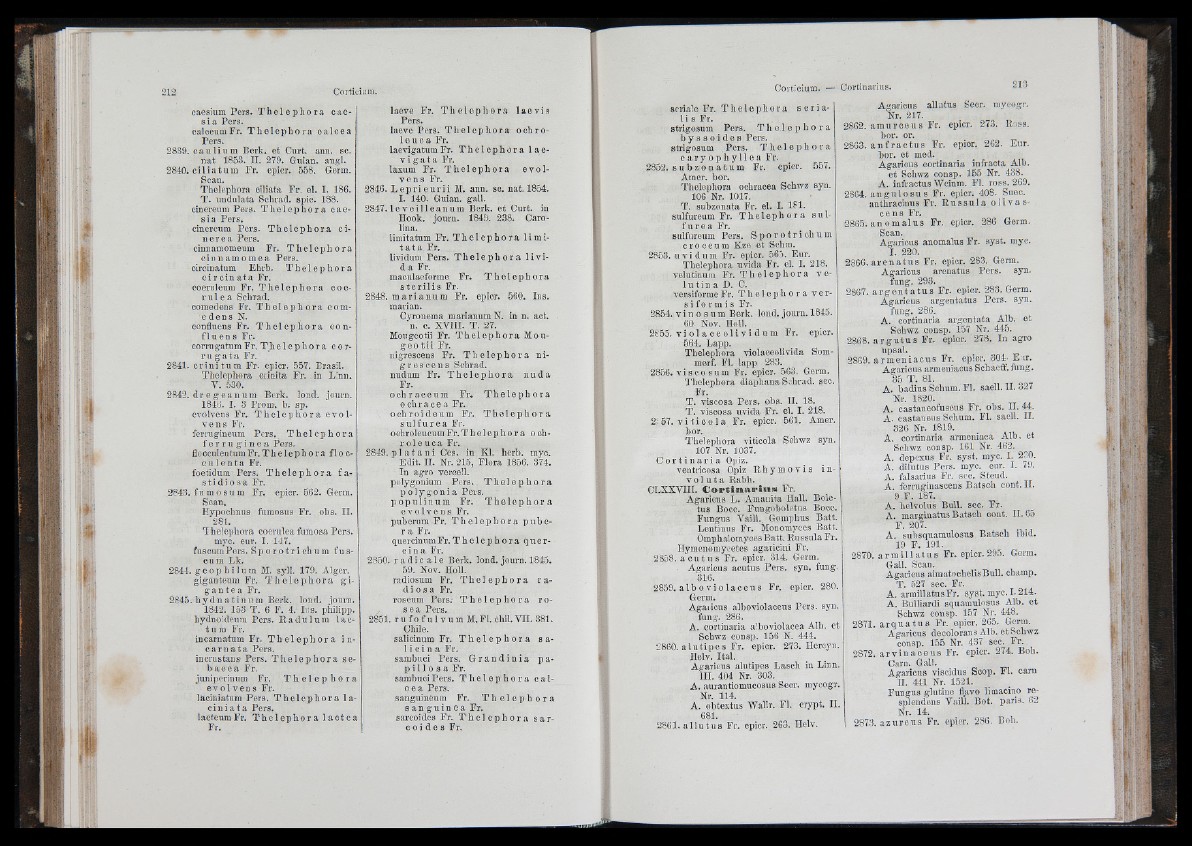 212
Corticium.
caesium Pers. Thelephora cae-
sia Pers.
calceum Fr. Thelephora calcea
Pers.
2839. caulium Berk. et Curt. ann. sc.
nat 1853. II. 279. Guian. angl.
2840. ciliatum Fr. epicr. 558. Germ.
Scan.
Thelephora ciliata Fr. el. I. 186.
T. undulata Schrad. spic. 188.
cinereum Pers. Thelephora cae-
sia Pers.
cinereum Pers. Thelephora ci-
nerea Pers.
cinnamomeum Fr. Thelephora
cinnamomea Pers.
circinatum Ehrb. Thelephora
circinata Fr.
coeruleum Fr. Thelephora coe-
rulea Schrad.
comedens Fr. Thelephora com-
edens N.
confluens Fr. Thelephora con-
fluens Fr.
corrugatum Fr. Thelephora cor-
rugata Fr.
2841. crinitum Fr. epicr. 557. Brasil.
Thelephora crinita Fr. in Linn.
V. 530.
2842. dregeanum Berk. lond. journ.
1846. I. 3 Prom. b. sp.
evolvens Fr. Thelephora evol-
vens Fr.
ferrugineum Pers. Thelephora
ferruginea Pers.
flocculentum Fr. Thelephora floc-
culenta Fr.
foetidum Pers. Thelephora fa-
stidiosa Fr.
2843. fumosum Fr. epicr. 562. Germ.
Scan.
Hypochnus fumosus Fr. obs. II.
281.
Thelephora coerulea fumosa Pers.
myc. eur. I. 147.
fuscum Pers. Sporotrichum fus-
cum Lk.
2844. geophilum M. syll. 179. Alger.
giganteum Fr. Thelephora gi-
gantea Fr.
2845. hydnatinum Berk. lond. journ.
1842. 153 T. 6 F. 4. Ins. philipp.
hydnoideum Pers. Radulum lae-
tum Fr.
incarnatum Fr. Thelephora in-
carnata Pers.
incrustans Pers. Thelephora se-
bacea Fr.
juniperinum Fr. Thelephora
evolvens Fr.
laciniatum Pers. Thelephora la-
ciniata Pers.
lacteum Fr. Thelephora lactea
Fr.
laeve Fr. Thelephora laevis
Pers.
laeve Pers. Thelephora ochro-
leuca Fr.
laevigatum Fr. Thelephora lae-
vigata Fr.
laxum Fr. Thelephora evol-
vens Fr.
2846. Leprieurii M. ann. sc. nat. 1854.
I. 140. Guian. gall.
2847. leveilleanum Berk. et Curt. in
Hook. journ. 1849. 238. Caro-
lina.
limitatum Fr. Thelephora limi-
tata Fr.
lividum Pers. Thelephora livi-
da Fr.
maculaeforme Fr. Thelephora
sterilis Fr.
2848. marianum Fr. epicr. 560. Ins.
marian.
Cyronema marianum N. in n. act.
n. c. XVIII. T. 27.
Mougeotii Fr. Thelephora Mou-
geotii Fr.
nigrescens Fr. Thelephora ni-
grescens Schrad.
nudum Fr. Thelephora nuda
Fr.
ochraceum Fr. Thelephora
ochracea Fr.
ochroideum Fr. Thelephora
sulfurea Fr.
ochroleucum Fr. Thelephora och-
roleuca Fr.
2849. platani Ces. in Kl. herb. myc.
Edit. II. Nr. 215, Flora 1856. 374.
In agro vercell.
polygonium Pers. Thelephora
polygonia Pers.
populinum Fr. Thelephora
evolvens Fr.
puberum Fr. Thelephora pube-
ra Fr.
quercinum Fr. Thelephora quer-
cina Fr.
2850. radicale Berk. lond. journ. 1845.
59. Nov. Holl.
radiosum Fr. Thelephora ra-
diosa Fr.
roseum Pers. Thelephora ro-
sea Pers.
2851. rufofulvum M. Fl. chil. VII. 381.
Chile.
salicinum Fr. Thelephora sa-
licina Fr.
sambuci Pers. Grandinia pa-
pillosa Fr.
sambuci Pers. Thelephora cal-
cea Pers.
sanguineum Fr. Thelephora
sanguinea Fr.
sarcoides Fr. Thelephora sar-
coides Fr.
Corticium. — Cortinarius.
213
seriale Fr. Thelephora seria-
lis Fr.
strigosum Pers. Thelephora
byssoides Pers.
strigosum Pers. Thelephora
caryophyllea Fr.
2852. subzonatum Fr. epicr. 557.
Amer. bor.
Thelephora ochracea Schwz syn.
106 Nr. 1017.
T. subzonata Fr. el. I. 181.
sulfureum Fr. Thelephora sul-
furea Fr.
sulfureum Pers. Sporotrichum
croceum Kze et Schm.
2853. uvidum Fr. epicr. 565. Eur.
Thelephora uvida Fr. el. I. 218.
velutinum Fr. Thelephora ve-
lutina D. C.
versiforme Fr. Thelephora ver-
siformis Fr.
2854. vinosum Berk. lond. journ. 1845.
60 Nov. Holl.
2855. violaceolividum Fr. epicr.
564. Lapp.
Thelephora violaceolivida Som-
merf. Fl. lapp 283.
2856. viscosum Fr. epicr. 563. Germ.
Thelephora diaphana Schrad. sec.
Fr.
T. viscosa Pers. obs. II. 18.
T. viscosa uvida Fr. el. I. 218.
2857. viticola Fr. epicr. 561. Amer.
bor.
Thelephora viticola Schwz syn.
107 Nr. 1037.
Cortinaria Opiz.
ventricosa Opiz Rhymovis in-
voluta Rabh.
CLXXVIII. Cortinarius Fr.
Agaricus L. Amanita Hall. Bole-
tus Bocc. Fungoboletus Bocc.
Fungus Vaill. Gomphus Batt.
Lentinus Fr. Monomyces Batt.
Omphalomyces Batt. Russula Fr.
Hymenomycetes agaricini Fr.
2858. acutus Fr. epicr. 314. Germ.
Agaricus acutus Pers. syn. fung.
316.
2859. alboviolaceus Fr. epicr. 280.
Germ.
Agaricus alboviolaceus Pers. syn.
fung. 286.
A. cortinaria alboviolacea Alb. et
Schwz consp. 156 N. 444.
2860. alutipes Fr. epicr. 273. Hercyn.
Helv. Ital.
Agaricus alutipes Lasch in Linn.
III. 404 Nr. 303.
A. aurantiomucosus Secr. mycogr.
Nr. 114.
A. obtextus Wallr. Fl. crypt. II.
681.
2861. allutus Fr. epicr. 263. Helv.
Agaricus allutus Secr. mycogr.
Nr. 217.
2862. amurceus Fr. epicr. 273. Ross.
bor. or.
2863. anfractus Fr. epicr. 262. Eur.
bor. et med.
Agaricus cortinaria infracta Alb.
et Schwz consp. 155 Nr. 438.
A. infractus Weinm. Fl. ross. 269.
2864. angulosus Fr. epicr. 408. Suec.
anthracinus Fr. Russula olivas-
cens Fr.
2865. anomalus Fr. epicr. 286 Germ.
Scan.
Agaricus anomalus Fr. syst. myc.
I. 220.
2866. arenatus Fr. epicr. 283. Germ.
Agaricus arenatus Pers. syn.
fung. 293.
2867. argentatus Fr. epicr. 283. Germ.
Agaricus argentatus Pers. syn.
fung. 286.
A. cortinaria argentata Alb. et
Schwz consp. 157 Nr. 445.
2868. argutus Fr. epicr. 278. In agro
upsal.
2869. armeniacus Fr. epicr. 304. Eur.
Agaricus armeniacus Schaeff. fung.
35 T. 81.
A. badius Schum. Fl. saell. II. 327
Nr. 1820.
A. castaneofuscus Fr. obs. II. 44.
A. castaneus Schum. Fl. saell. II.
326 Nr. 1819.
A. cortinaria armeniaca Alb. et
Schwz consp. 161 Nr. 462.
A. depexus Fr. syst. myc. I. 230.
A. dilutus Pers. myc. eur. I. 79.
A. falsarius Fr. sec. Steud.
A. ferruginascens Batsch cont. II.
9 F. 187.
A. helvolus Bull. sec. Fr.
A. marginatus Batsch cont. II. 65
F. 207.
A. subsquamulosus Batsch ibid.
19 F. 191.
2870. armillatus Fr. epicr. 295. Germ.
Gall. Scan.
Agaricus aimatochelis Bull. champ.
T. 527 sec. Fr.
A. armillatus Fr. syst. myc. I. 214.
A. Bulliardi squamulosus Alb. et
Schwz consp. 157 Nr. 448.
2871. arquatus Fr. epicr. 265. Germ.
Agaricus decolorans Alb. et Schwz
consp. 155 Nr. 437 sec. Fr.
2872. arvinaceus Fr. epicr. 274. Boh.
Carn. Gall.
Agaricus viscidus Scop. Fl. carn
II. 441 Nr. 1521.
Fungus glutine flavo limacino re-
splendens Vaill. Bot. paris. 62
Nr. 14.
2873. azureus Fr. epicr. 286. Boh.